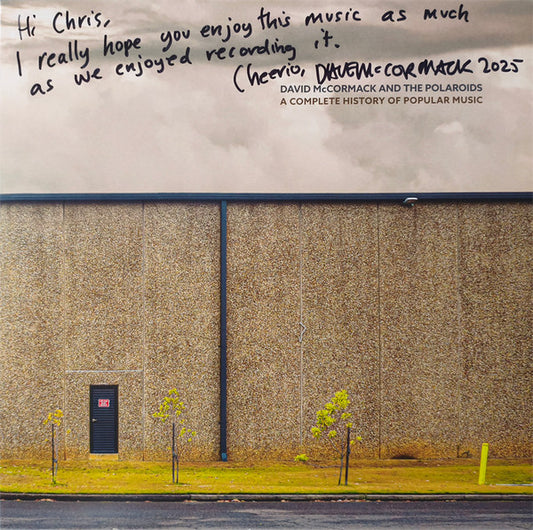 Hi Chris,
I really hope you enjoy this music as much
as we enjoyed recording it.
Cheerio, DAVE McCORMACK 2025
DAVID McCORMACK AND THE POLAROIDS
A COMPLETE HISTORY OF POPULAR MUSIC